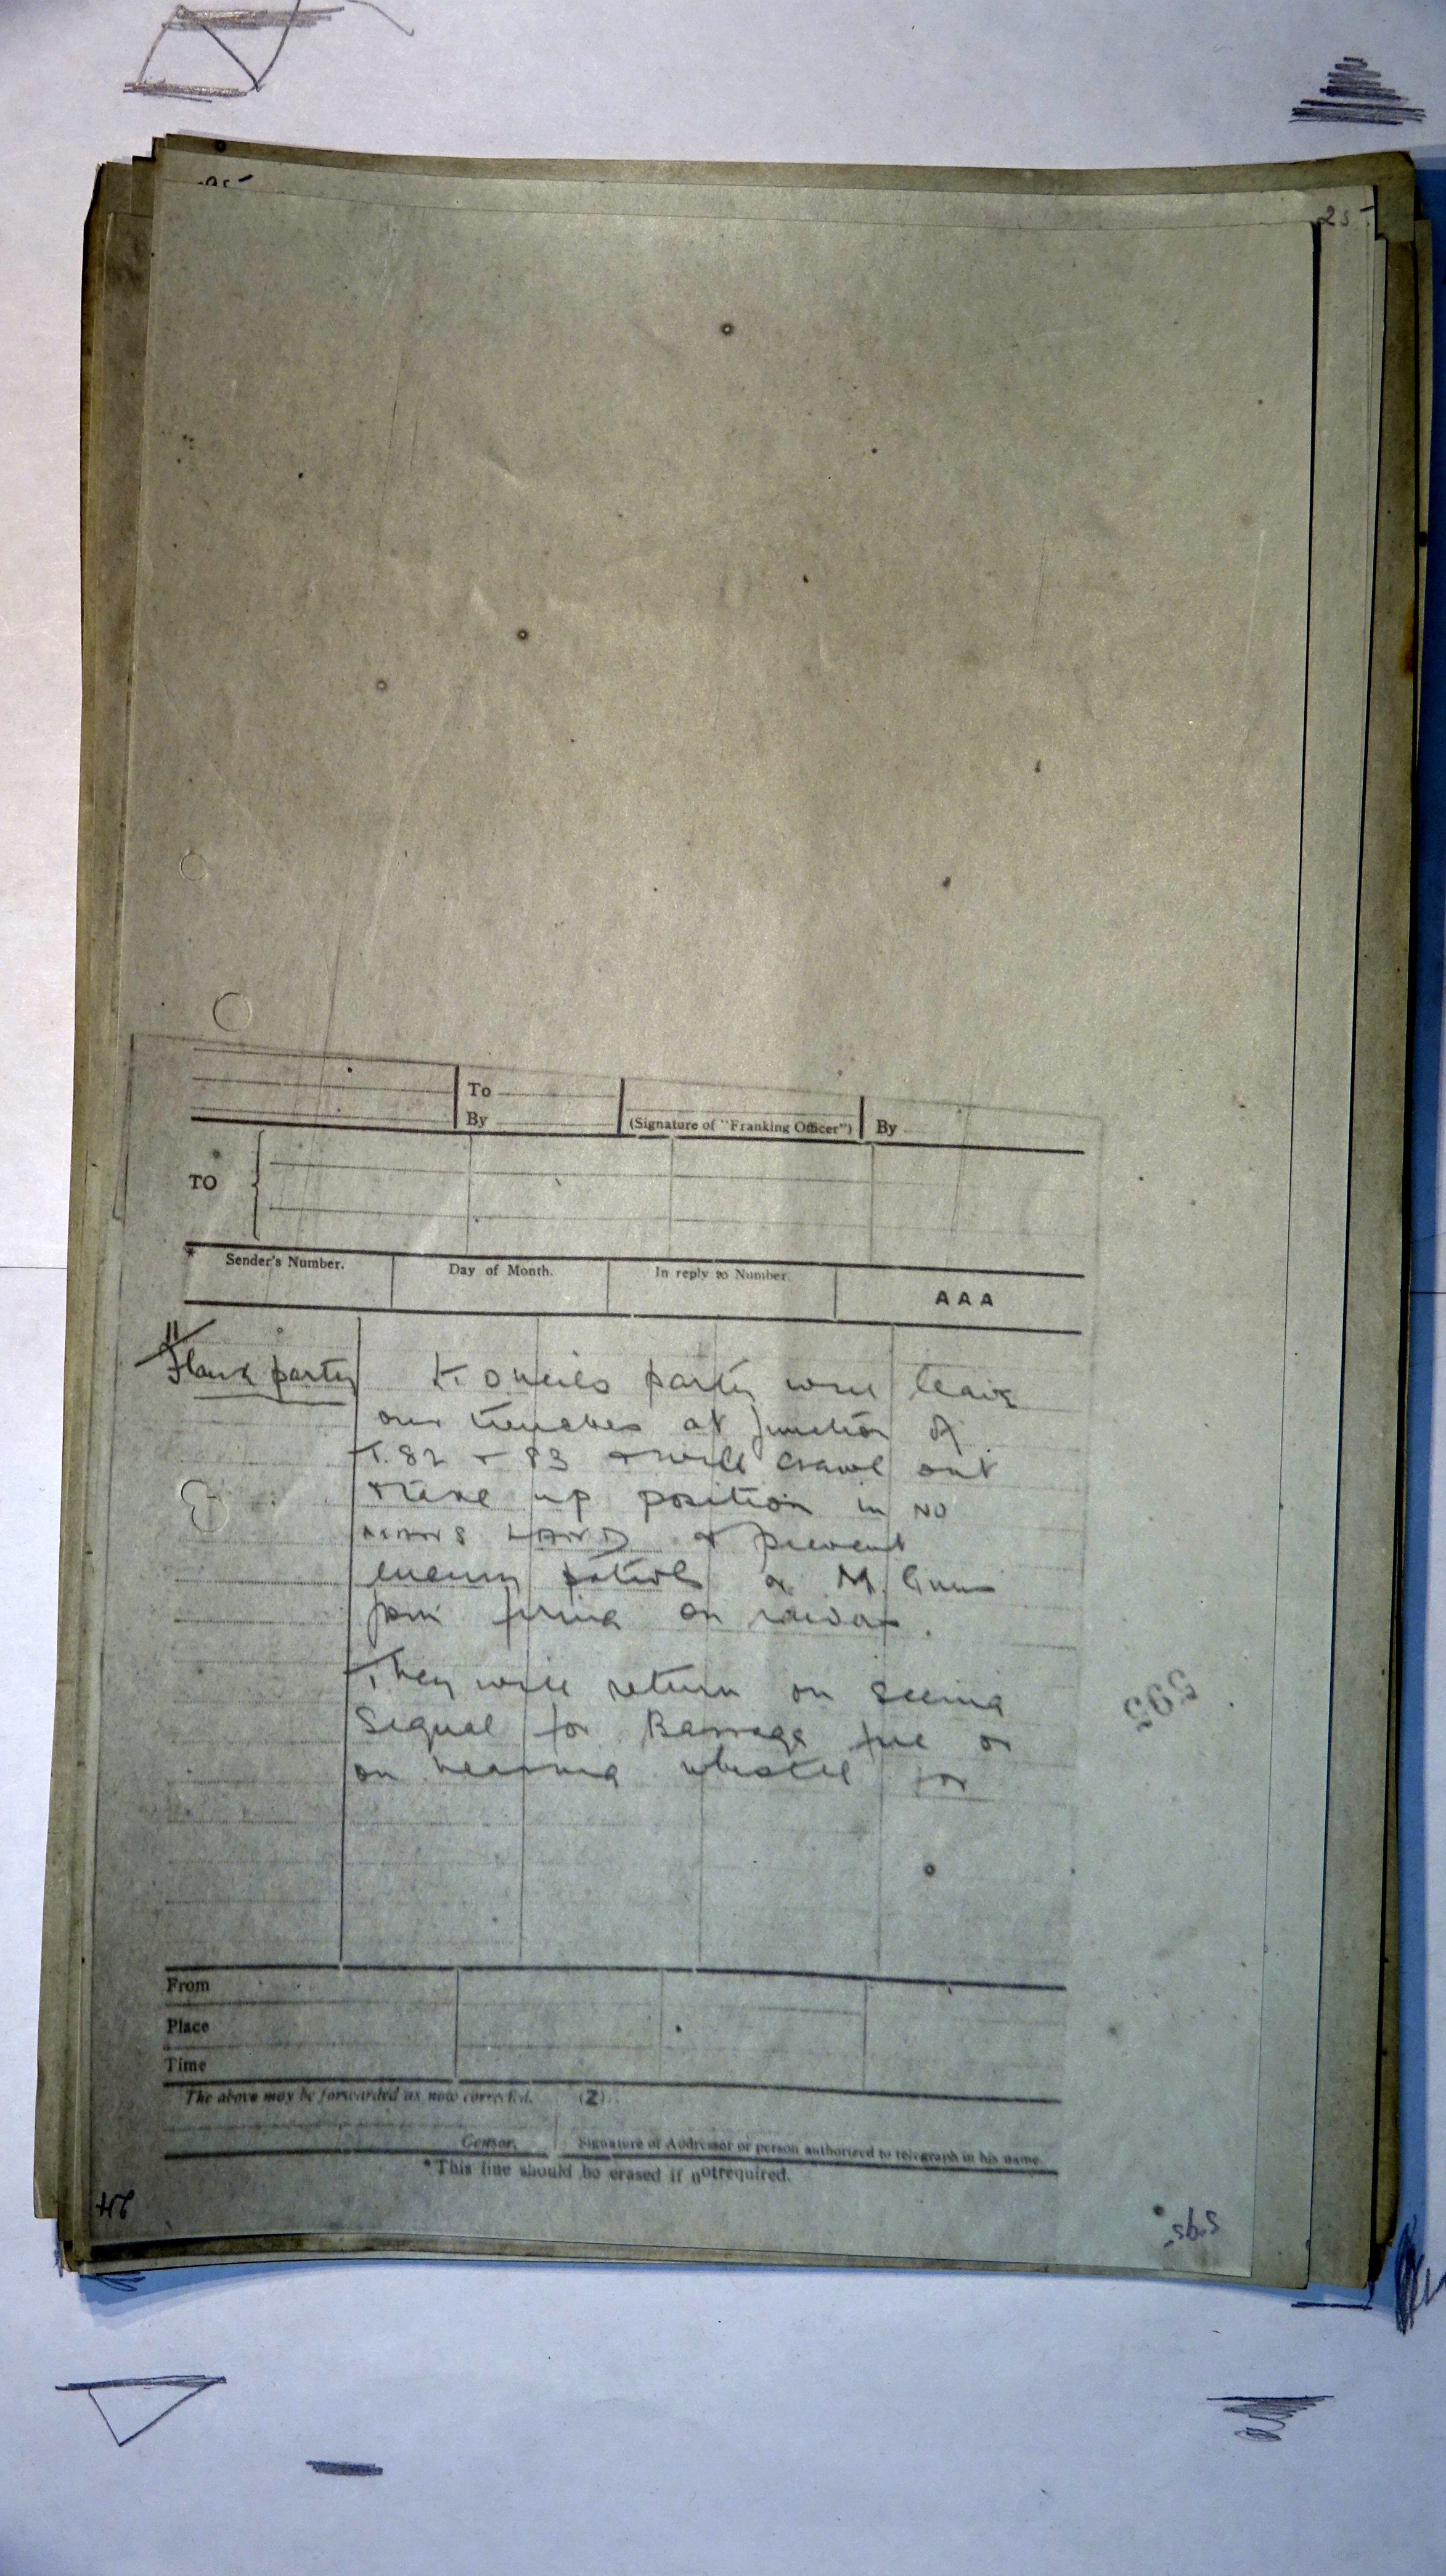 25
To
By
(Signature of "Franking Officer")
By
TO
* Sender's Number.
Day of Month.
In reply to Number.
AAA
11
Flank party
party will leave
our trenches at junction of
T.82 + 83 + will crawl out
+ take up position in NO
MANS LAND + prevent
enemy patrols or M. Guns
from firing on raiders.
They will return on seeing
Signal for Barrage fire or
on hearing whistle for
595
From
Place
Time
The above may be forwarded as now corrected.
(Z)
Censor.
Signature of Addressor or person authorized to telegraph in his name
* This line should be erased if not required.